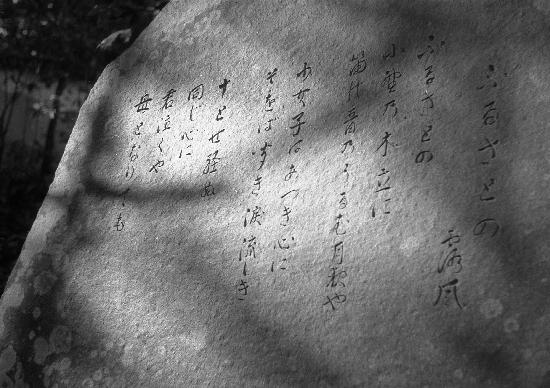 ふるさとの
露風
ふるさとの
小野乃木立に
笛の音乃うるむ月夜や
少女子はあつき心に
そをばきき涙流しき
十とせ経ぬ
同じ心に
君泣くや
母となりても